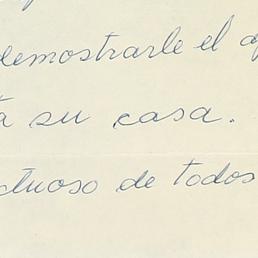 demostrarle el
su casa.
de todos